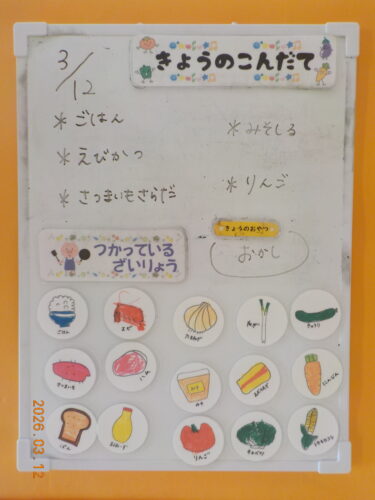 きょうのこんだて
3/12
* ごはん
* えびかつ
* さつまいもさらだ
* みそしる
* りんご
きょうのおやつ
おかし
つかっている
ざいりょう
ごはん
えび
たまねぎ
ねぎ
きゅうり
さつまいも
にく
みそ
にんじん
ぱん
りんご
キャベツ
トウモロコシ
2026.03.12